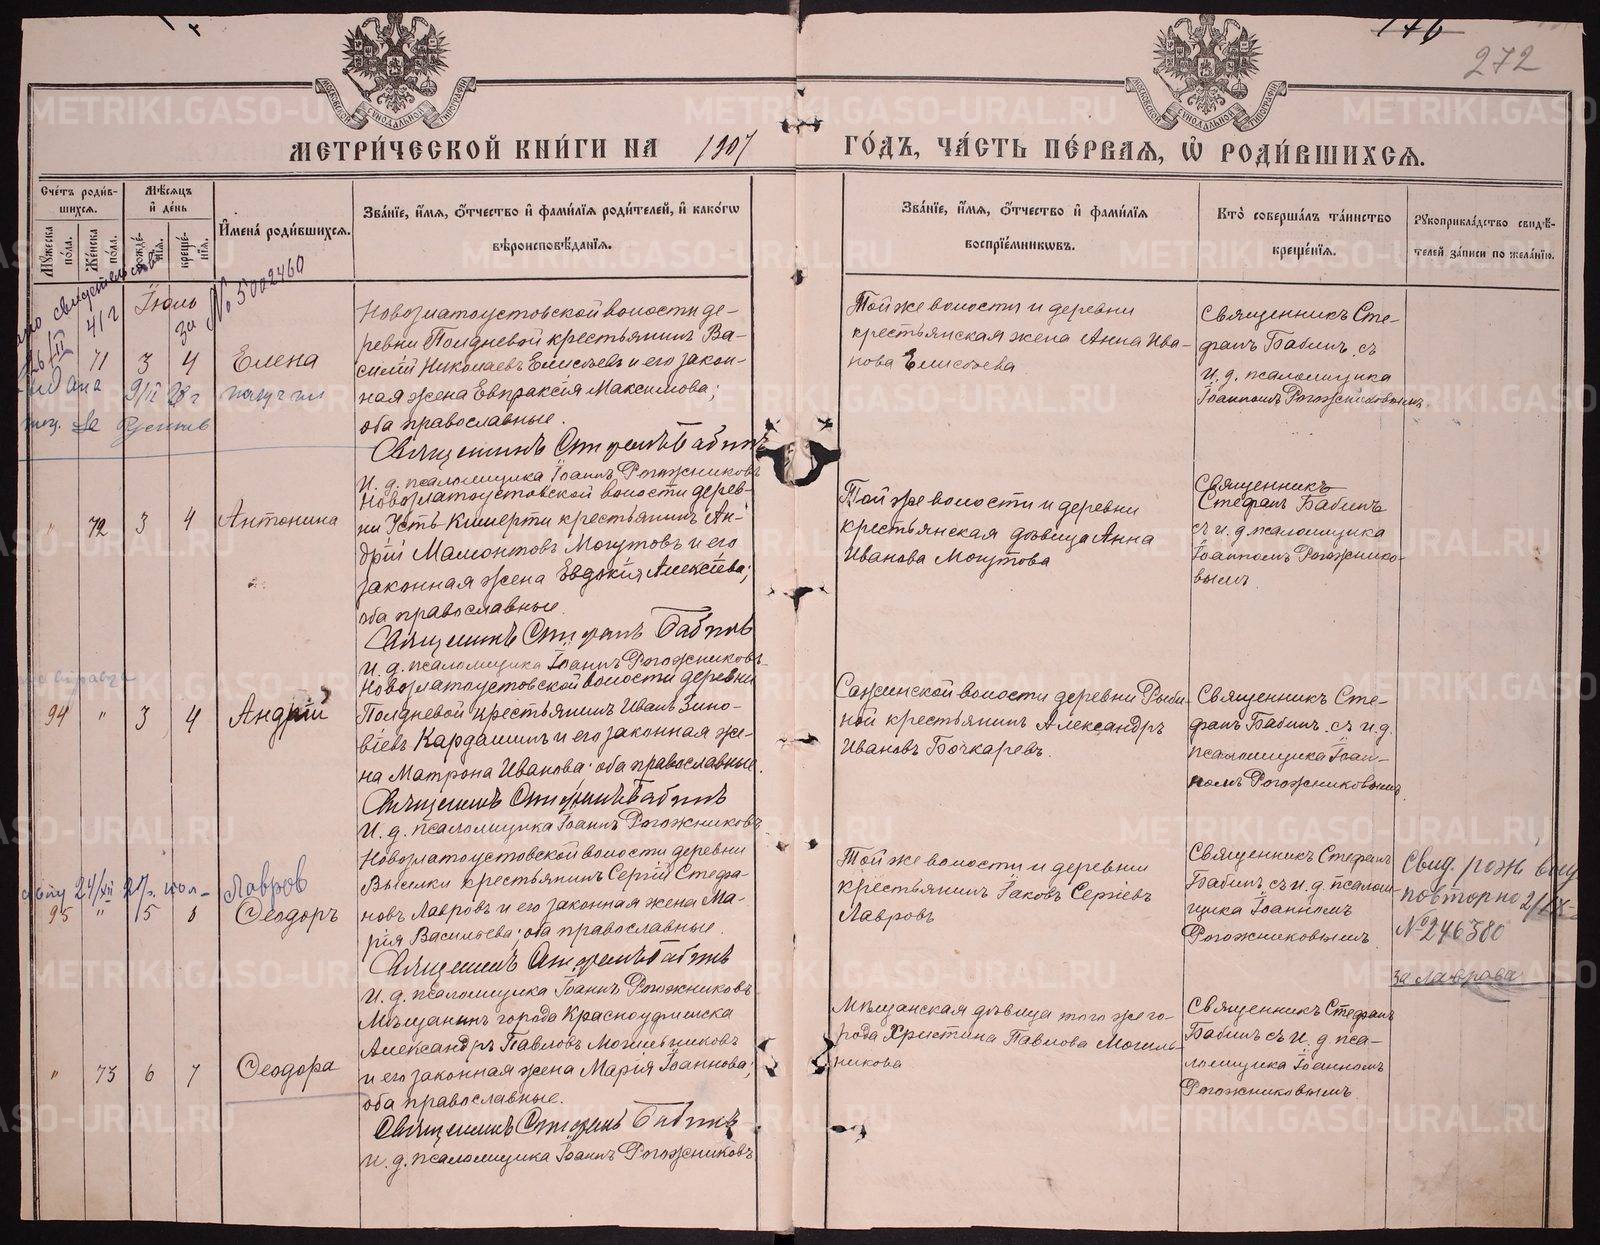 176
272
МЕТРИ́ЧЕСКОЙ КНИ́ГИ НА 1907 ГО́ДЪ, ЧА́СТЬ ПЕ́РВАЯ, Ѡ РОДИ́ВШИХСЯ.
Сче́тъ роди́в-
шихся.
Мѣ́сяцъ
и҆ де́нь
Мꙋ́жеска по́ла.
Же́нска по́ла.
рожде́-
нїѧ.
креще́-
нїѧ.
И҆мена̀ роди́вшихсѧ.
Зва́нїе, и҆́мѧ, ѻ҆́тчество и҆ фами́лїѧ роди́телей, и҆ како́гѡ
вѣроисповѣ́данїѧ.
Зва́нїе, и҆́мѧ, ѻ҆́тчество и҆ фами́лїѧ
воспрїе́мникѡвъ.
Кто̀ соверша́лъ та́инство
креще́нїѧ.
Рꙋкоприкла́дство свидѣ́-
телей за́писи по жела́нїю.
№ 5002460
Іюль
71 3 4 Елена
9/II 28 г получил
Новозлатоустовской волости де-
ревни Полдневой крестьянинъ Ва-
силій Николаевъ Елисѣевъ и его закон-
ная жена Евпраксія Максимова;
оба православные.
Священникъ Стефанъ Бабинъ
И. д. псаломщика Іоаннъ Рогожниковъ
Той же волости и деревни
крестьянская жена Анна Ива-
нова Елисѣева
Священникъ Сте-
фанъ Бабинъ съ
и. д. псаломщика
Іоанномъ Рогожниковымъ
" 72 3 4 Антонина
Новозлатоустовской волости дерев-
ни Усть-Кишерти крестьянинъ Ан-
дрій Мамонтовъ Могутовъ и его
законная жена Евдокія Алексіева;
оба православные.
Священникъ Стефанъ Бабинъ
И. д. псаломщика Іоаннъ Рогожниковъ
Той же волости и деревни
крестьянская дѣвица Анна
Иванова Могутова
Священникъ
Стефанъ Бабинъ
съ и. д. псаломщика
Іоанномъ Рогожнико-
вымъ
94 " 3 4 Андрій
Новозлатоустовской волости деревни
Полдневой крестьянинъ Иванъ Зино-
віевъ Кардашинъ и его законная же-
на Матрона Иванова; оба православные.
Священникъ Стефанъ Бабинъ
И. д. псаломщика Іоаннъ Рогожниковъ
Сажинской волости деревни Рыби-
ной крестьянинъ Александръ
Ивановъ Бочкаревъ.
Священникъ Сте-
фанъ Бабинъ съ и. д.
псаломщика Іоан-
номъ Рогожниковымъ
Лавров
95 " 5 8 Ѳеодоръ
Новозлатоустовской волости деревни
Выселки крестьянинъ Сергій Стефа-
новъ Лавровъ и его законная жена Ма-
рія Васильева; оба православные.
Священникъ Стефанъ Бабинъ
И. д. псаломщика Іоаннъ Рогожниковъ
Той же волости и деревни
крестьянинъ Іаковъ Сергіевъ
Лавровъ
Священникъ Стефанъ
Бабинъ съ и. д. псалом-
щика Іоанномъ
Рогожниковымъ.
Свид. рож.
повторно
№ 246380
" 73 6 7 Ѳеодора
Мѣщанинъ города Красноуфимска
Александръ Павловъ Могильниковъ
и его законная жена Марія Іоаннова;
оба православные.
Священникъ Стефанъ Бабинъ
И. д. псаломщика Іоаннъ Рогожниковъ
Мѣщанская дѣвица того же го-
рода Христина Павлова Могиль-
никова
Священникъ Стефанъ
Бабинъ съ и. д. пса-
ломщика Іоанномъ
Рогожниковымъ.